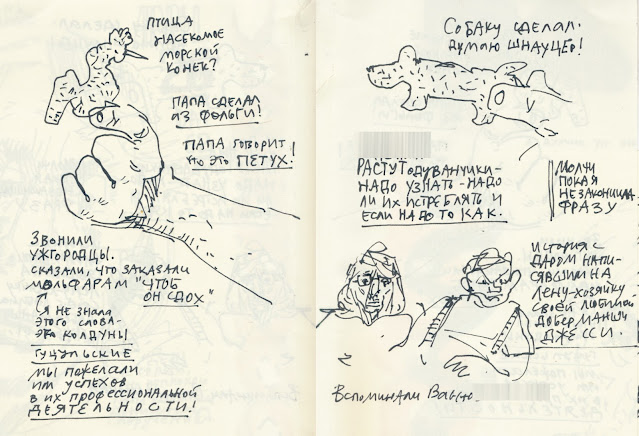 ПТИЦА
НАСЕКОМОЕ
МОРСКОЙ
КОНЕК?
ПАПА СДЕЛАЛ
ИЗ ФОЛЬГИ!
ПАПА ГОВОРИТ
ЧТО ЭТО ПЕТУХ!
ЗВОНИЛИ
УЖГОРОДЦЫ.
СКАЗАЛИ, ЧТО ЗАКАЗАЛИ
МОЛЬФАРАМ "ЧТОБ
ОН СДОХ"
Я НЕ ЗНАЛА
ЭТОГО СЛОВА-
ЭТО КОЛДУНЫ
ГУЦУЛЬСКИЕ
МЫ ПОЖЕЛАЛИ
ИМ УСПЕХОВ
В ИХ ПРОФЕССИОНАЛЬНОЙ
ДЕЯТЕЛЬНОСТИ!
СОБАКУ СДЕЛАЛ.
ДУМАЮ ШНАУЦЕР!
РАСТУТ ОДУВАНЧИКИ-
НАДО УЗНАТЬ-НАДО
ЛИ ИХ ИСТРЕБЛЯТЬ И
ЕСЛИ НАДО ТО КАК.
МОЛЧИ
ПОКА Я
НЕ ЗАКОНЧИЛА
ФРАЗУ
ИСТОРИЯ С
НАПИ-
СЯВШИМ НА
ЛЕНУ-ХОЗЯЙКУ
СВОЕЙ ЛЮБИМОЙ
ДОБЕРМАНШИ
ДЖЕССИ.
ВСПОМИНАЛИ